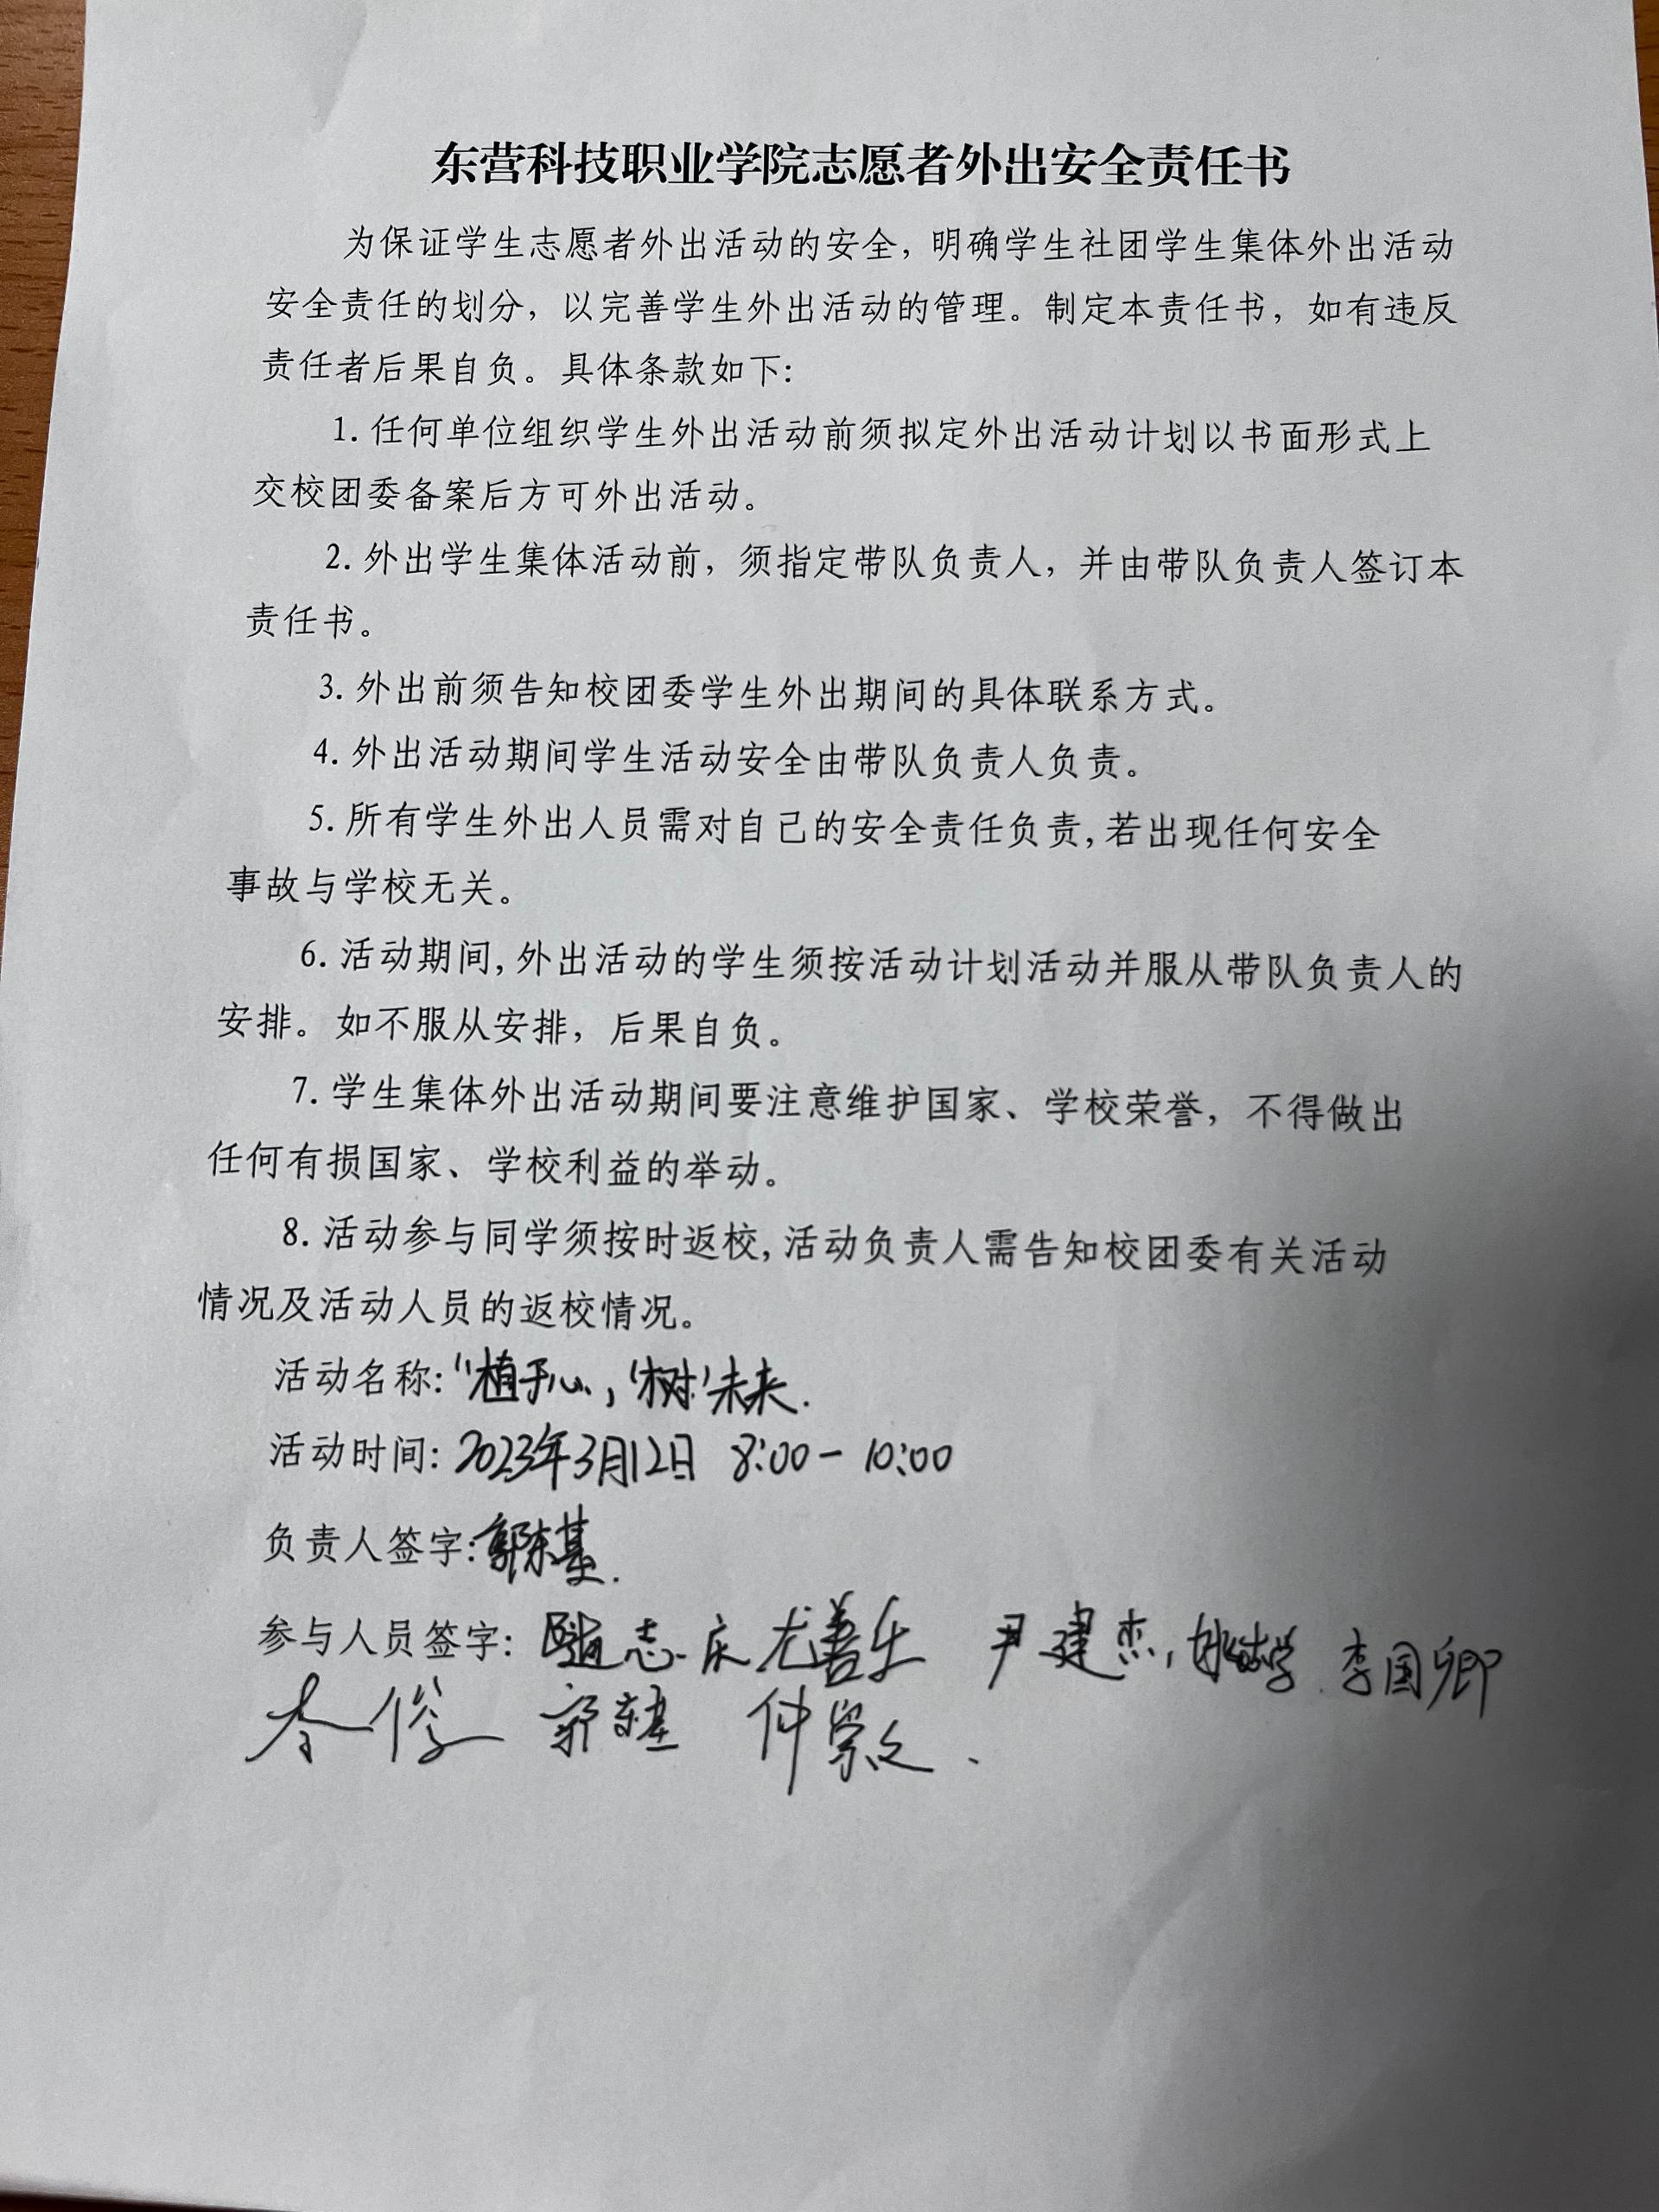 东营科技职业学院志愿者外出安全责任书
为保证学生志愿者外出活动的安全，明确学生社团学生集体外出活动
安全责任的划分，以完善学生外出活动的管理。制定本责任书，如有违反
责任者后果自负。具体条款如下：
1.任何单位组织学生外出活动前须拟定外出活动计划以书面形式上
交校团委备案后方可外出活动。
2.外出学生集体活动前，须指定带队负责人，并由带队负责人签订本
责任书。
3.外出前须告知校团委学生外出期间的具体联系方式。
4.外出活动期间学生活动安全由带队负责人负责。
5.所有学生外出人员需对自己的安全责任负责,若出现任何安全
事故与学校无关。
6.活动期间,外出活动的学生须按活动计划活动并服从带队负责人的
安排。如不服从安排，后果自负。
7.学生集体外出活动期间要注意维护国家、学校荣誉，不得做出
任何有损国家、学校利益的举动。
8.活动参与同学须按时返校,活动负责人需告知校团委有关活动
情况及活动人员的返校情况。
活动名称:“植于心，‘树’未来.
活动时间:2023年3月12日 8:00-10:00
负责人签字:郭东基.
参与人员签字: 志庆 尤善乐 尹建杰, 李国卿
李俊 郭东基